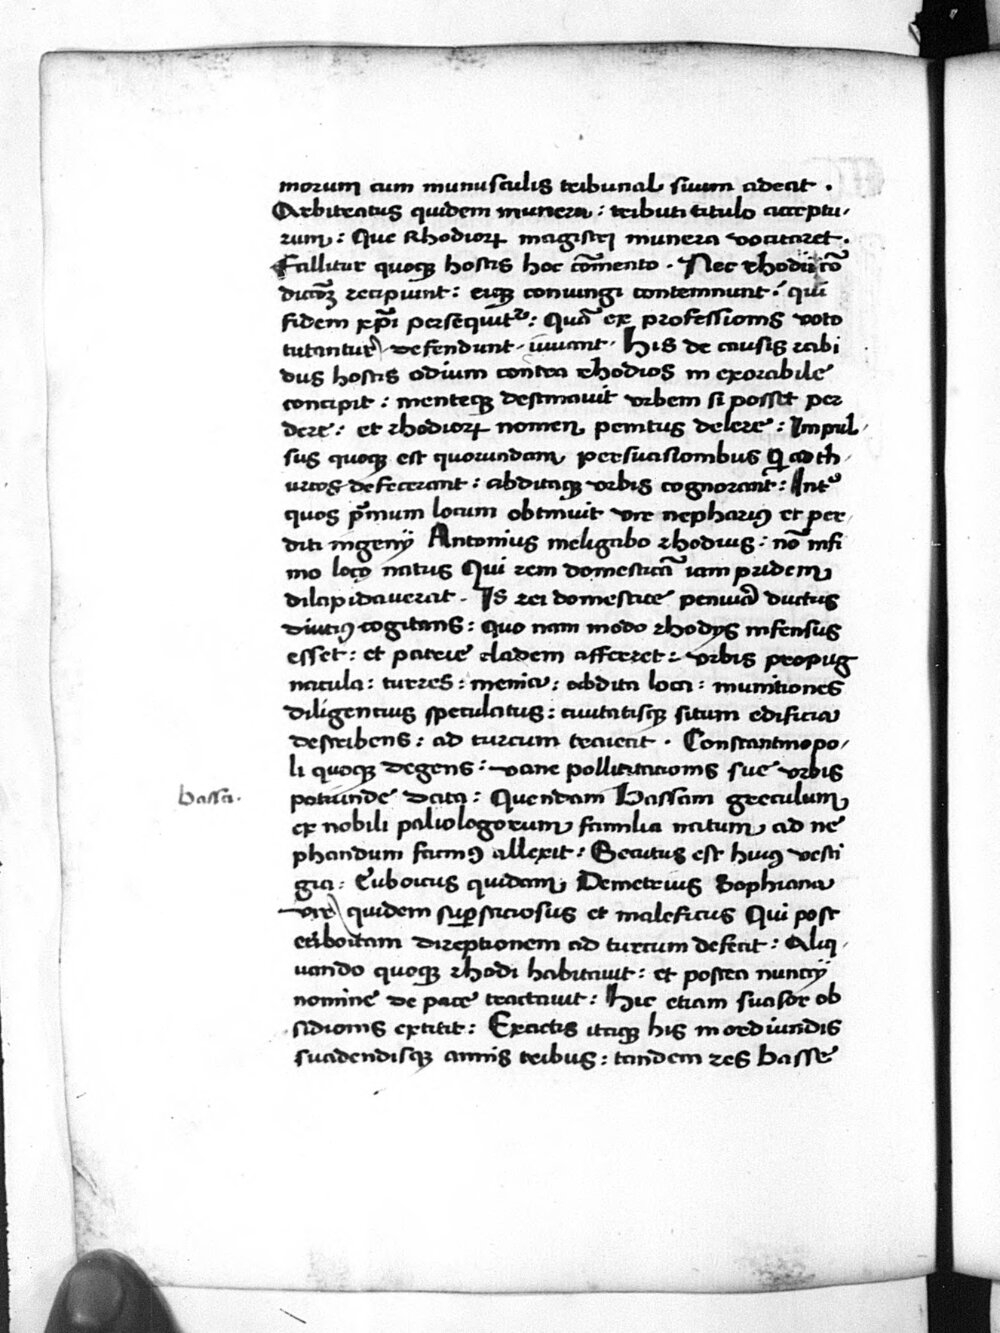 morum cum munusculis tribunal suum adeat .
Arbitratus quidem munera : tributi titulo acceptu,
rum : Que Rhodioꝝ magistri munera vocitaret .
Fallitur quoqꝫ hostis hoc cōmento . Nec rhodii cō
dicōꝫ recipiunt : eiqꝫ coniungi contemnunt : qui
fidem xp̄i persequitᵘʳ : Quā ex professionis voto
tutantur defendunt . iuuant . His de causis rabi
dus hostis odium contra rhodios in exorabile
concipit : menteqꝫ destinauit vrbem si posset per
dere : et rhodioꝝ nomen penitus delere : Impul,
sus quoqꝫ est quorundam persuasionibus q̄ ad th,
urcos defecerant : abditaqꝫ vrbis cognorant : Intᵉʳ
quos p̄mum locum obtinuit vir nephariꝯ et per,
diti ingenij Antonius meligabo rhodius : nō infi
mo loco natus Qui rem domesticā iam pridem
dilapidauerat . Is rei domestice penuria ductus
diutiꝯ cogitans : quo nam modo rhodijs infensus
esset : et patrie cladem afferret : vrbis propug
nacula : turres : menia : abdita loca : munitiones
diligentius speculatus : ciuitatisqꝫ situm edificia
describens : ad turcum traieat . Constantinopo,
li quoqꝫ degens : vane pollicitationis sue vrbis
potiunde data : Quendam Bassam greculum
ex nobili paliologorum familia natum ad ne
phandum facinꝯ allexit : Secutus est huiꝯ vesti
gia : Euboicus quidam Demetrius Sophiana
vir quidem suꝑsticiosus et maleficus Qui post
euboicam direptionem ad turcum defecit : Aliq,
uando quoqꝫ rhodi habitauit : et postea nuncij
nomine de pace tractauit : Hic etiam suasor ob
sidionis extitit : Exactis itaqꝫ his in ordiundis
suadendisqꝫ annis tribus : tandem res basse
bassa .